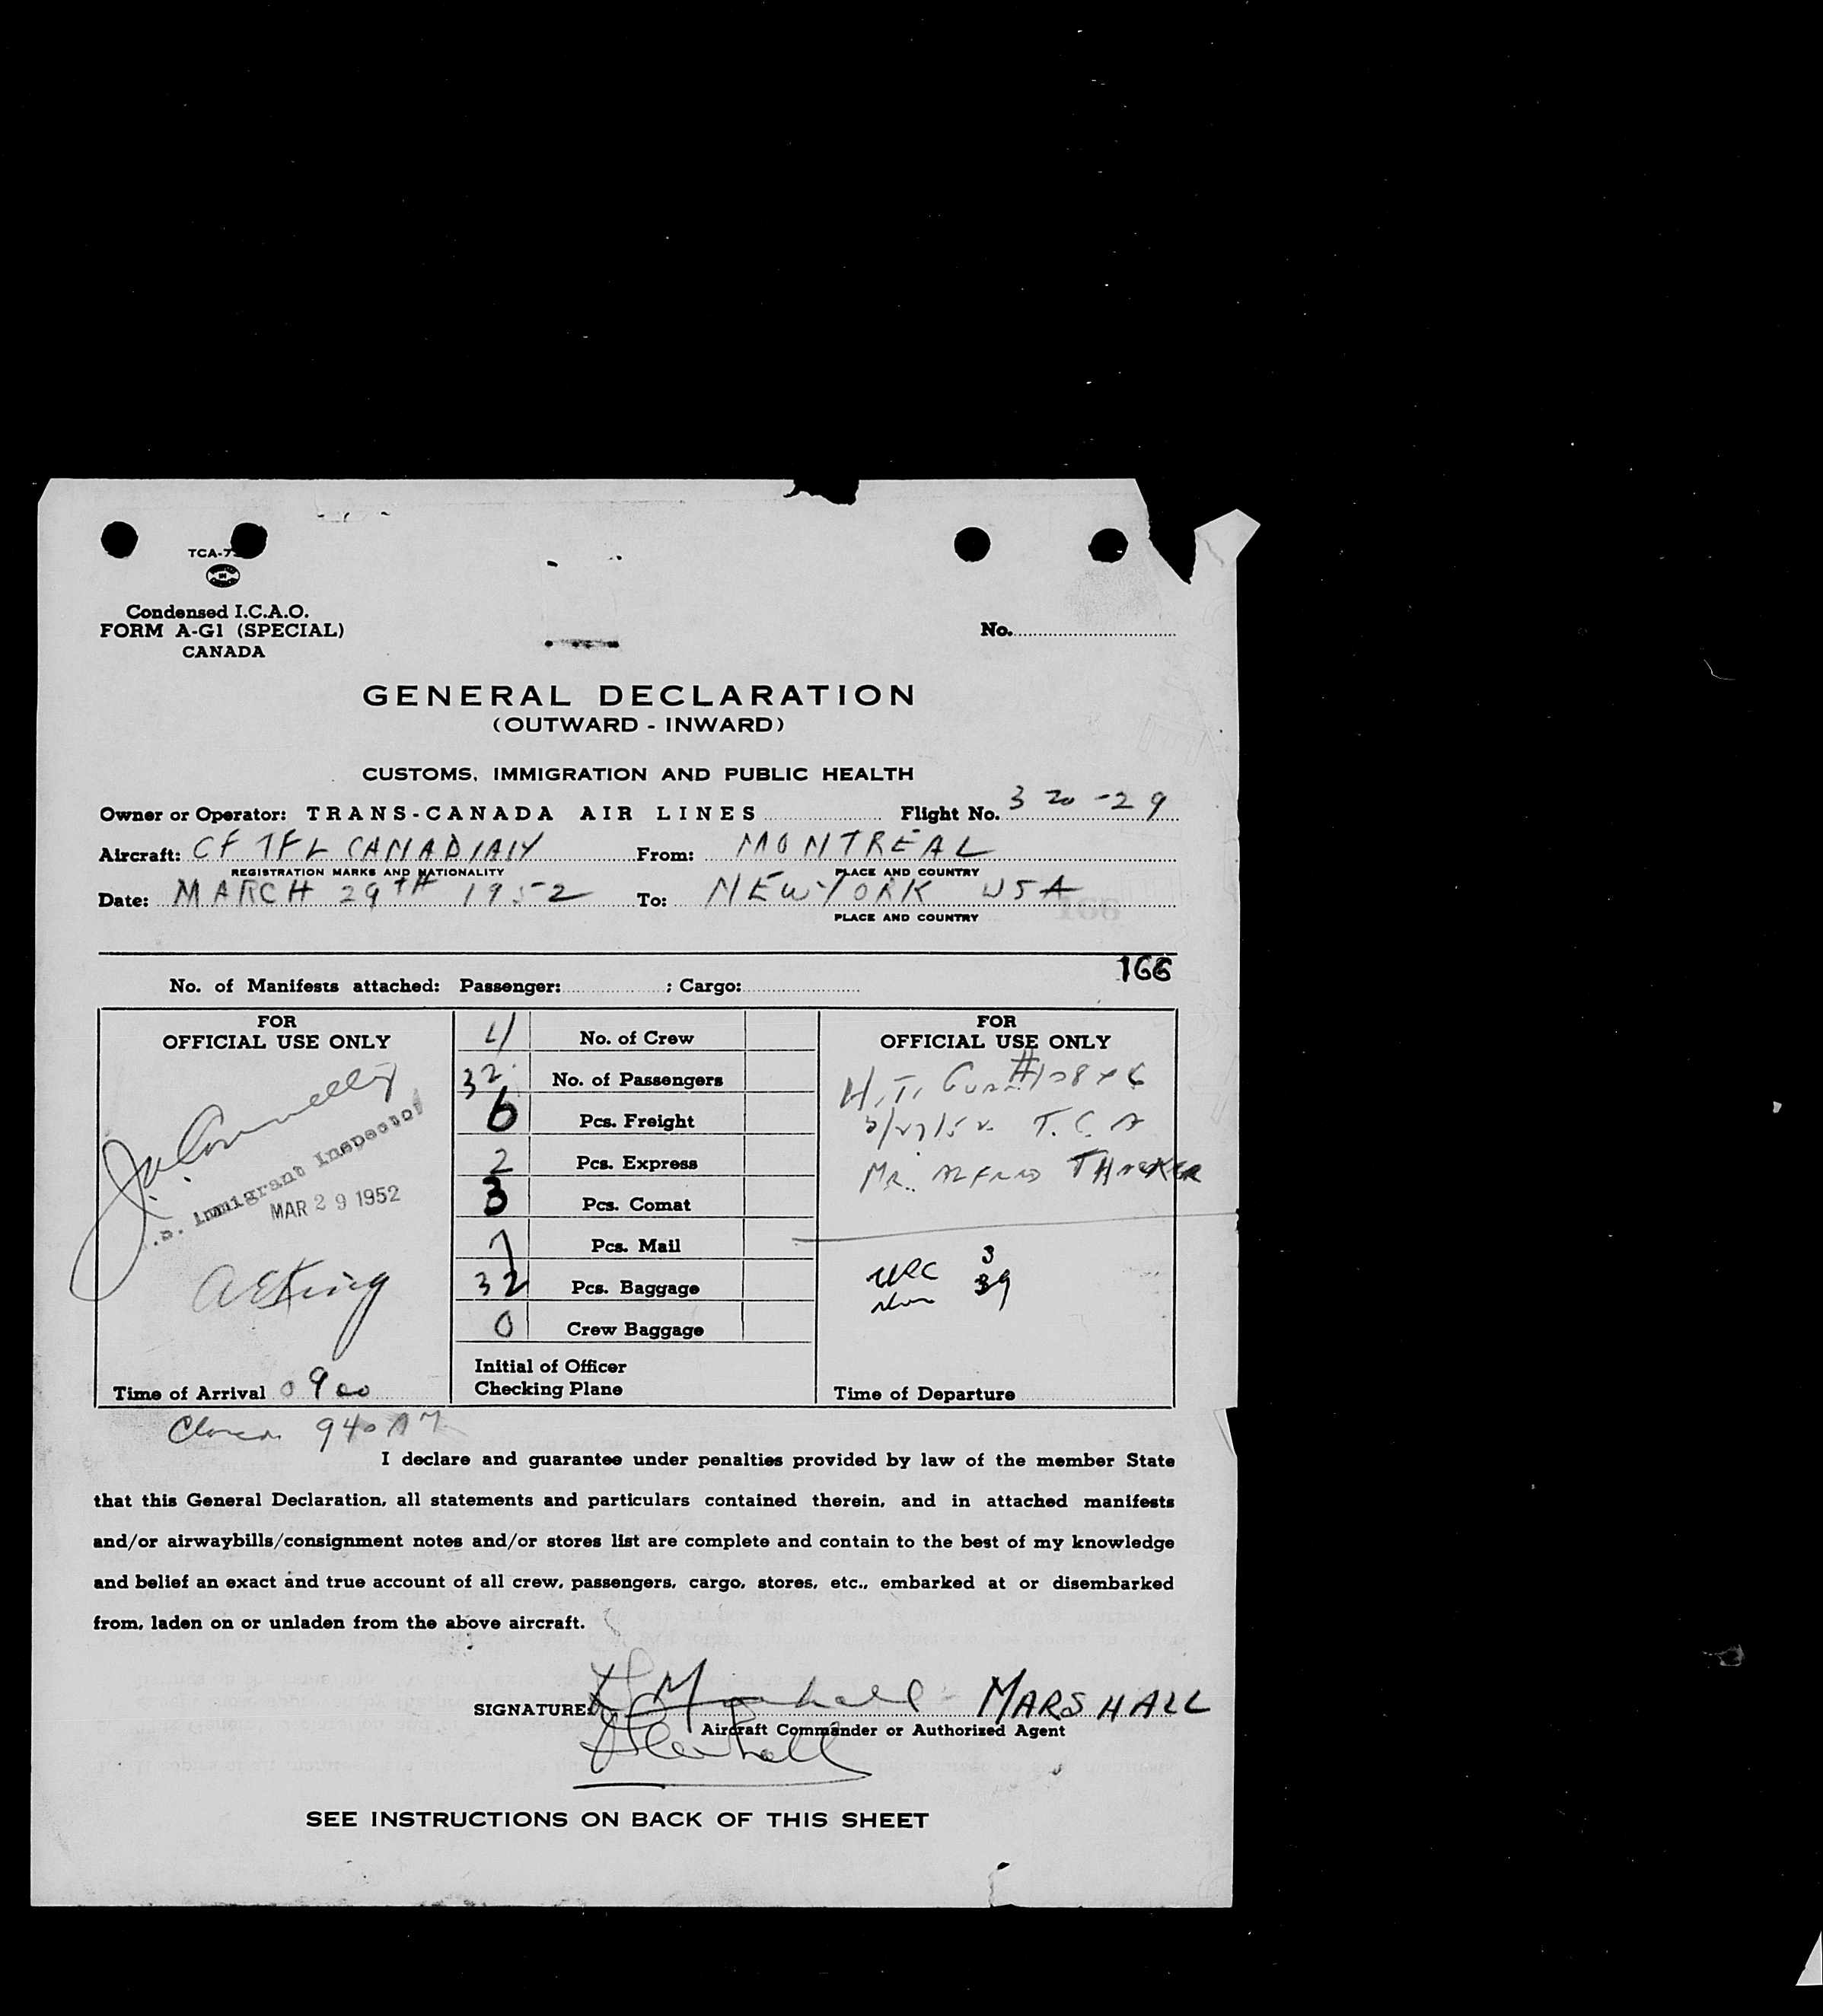 TCA-7
Condensed I.C.A.O.
FORM A-G1 (SPECIAL)
CANADA
No.
GENERAL DECLARATION
(OUTWARD - INWARD)
CUSTOMS, IMMIGRATION AND PUBLIC HEALTH
Owner or Operator: TRANS-CANADA AIR LINES Flight No. 320-29
Aircraft: CF TFL CANADIAN From: MONTREAL
REGISTRATION MARKS AND NATIONALITY PLACE AND COUNTRY
Date: MARCH 29TH 1952 To: NEW YORK USA
PLACE AND COUNTRY
166
No. of Manifests attached: Passenger: ; Cargo:
FOR
OFFICIAL USE ONLY
J. Connelly
.S. Immigrant Inspector
MAR 29 1952
AE King
Time of Arrival 0900
4 No. of Crew
32 No. of Passengers
6 Pcs. Freight
2 Pcs. Express
3 Pcs. Comat
7 Pcs. Mail
32 Pcs. Baggage
0 Crew Baggage
Initial of Officer
Checking Plane
FOR
OFFICIAL USE ONLY
H.T.
T.C.A
MR. ALFRED
3
39
Time of Departure
940 AM
I declare and guarantee under penalties provided by law of the member State
that this General Declaration, all statements and particulars contained therein, and in attached manifests
and/or airwaybills/consignment notes and/or stores list are complete and contain to the best of my knowledge
and belief an exact and true account of all crew, passengers, cargo, stores, etc., embarked at or disembarked
from, laden on or unladen from the above aircraft.
SIGNATURE: Marshall - MARSHALL
Aircraft Commander or Authorized Agent
SEE INSTRUCTIONS ON BACK OF THIS SHEET